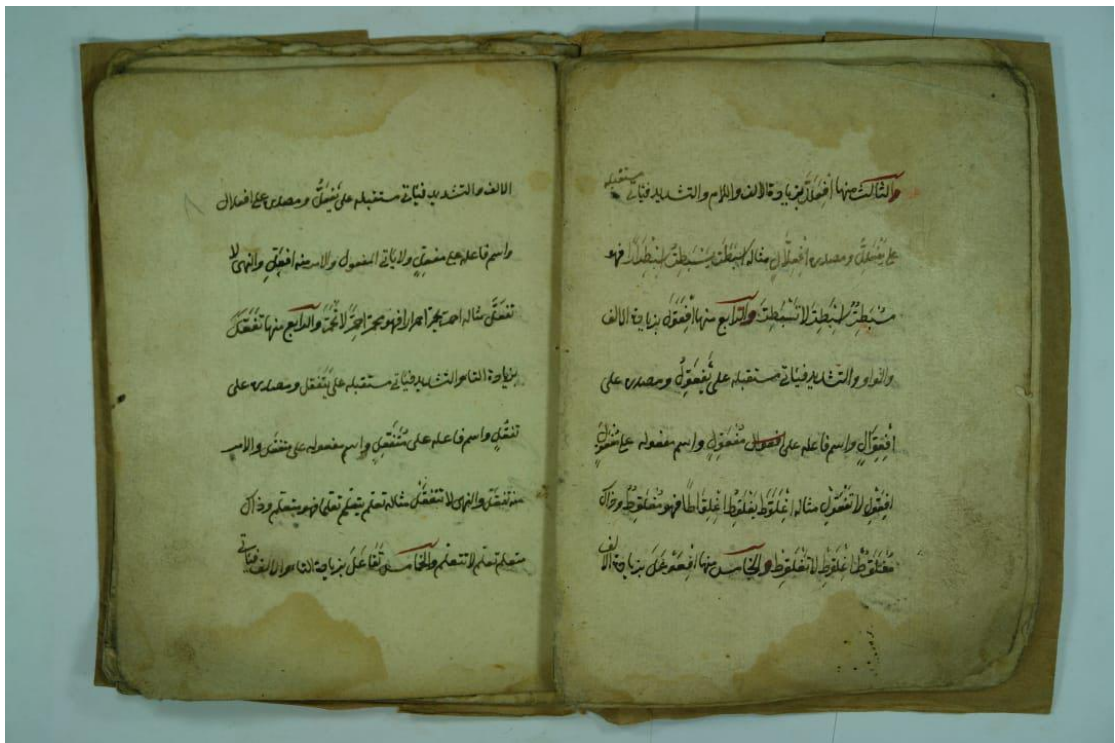 والثالث منها اِفْعَلَلَّ بزيادة الالف واللام والتشديد فيأتي مستقبله
على يَفْعَلِلُّ ومصدره اِفْعِلَّالٍ مثاله اسبَطَرَّ يَسْبَطِرُّ اِسْبِطْرَارًا فهو
مُسْبَطِرٌّ اِسْبَطِرَّ لا تَسْبَطِرَّ والرابع منها اِفْعَوَّلَ بزيادة الالف
والواو والتشديد فيأتي مستقبله على يَفْعَوِّلُ ومصدره على
اِفْعِوَّالٍ واسم فاعله على مُفْعَوِّلٍ واسم مفعوله على مُفْعَوَّلٍ
اِفْعَوِّلْ لا تَفْعَوِّلْ مثاله اِعْلَوَّطَ يَعْلَوِّطُ اِعْلِوَّاطًا فهو مُعْلَوِّطٌ وذاك
مُعْلَوَّطٌ اِعْلَوِّطْ لا تَعْلَوِّطْ والخامس منها اِفْعَوْعَلَ بزيادة الالف
الالف والتشديد فيأتي مستقبله على يَفْعَلُّ ومصدره على افعلال
واسم فاعله على مفعلٍّ ولا يأتي المفعول والامر منه افعَلِّ والنهي لا
تفعَلَّ مثاله احمرّ يحمرّ احمرارا فهو محمرّ احمَرَّ لا تحمَرَّ والرابع منها تَفَعَّلَ
بزيادة التاء والتشديد فيأتي مستقبله على يَتَفعّل ومصدره على
تفعُّلٍ واسم فاعله على مُتَفَعِّلٍ واسم مفعوله على متفعَّل والامر
منه تفعّل والنهي لا تتفعَّل مثاله تعلّم يتعلّم تعلّما فهو متعلّم وذاك
متعلّم تعلّم لا تتعلّم والخامس تَفَاعَلَ بزيادة التاء والالف فيأتي